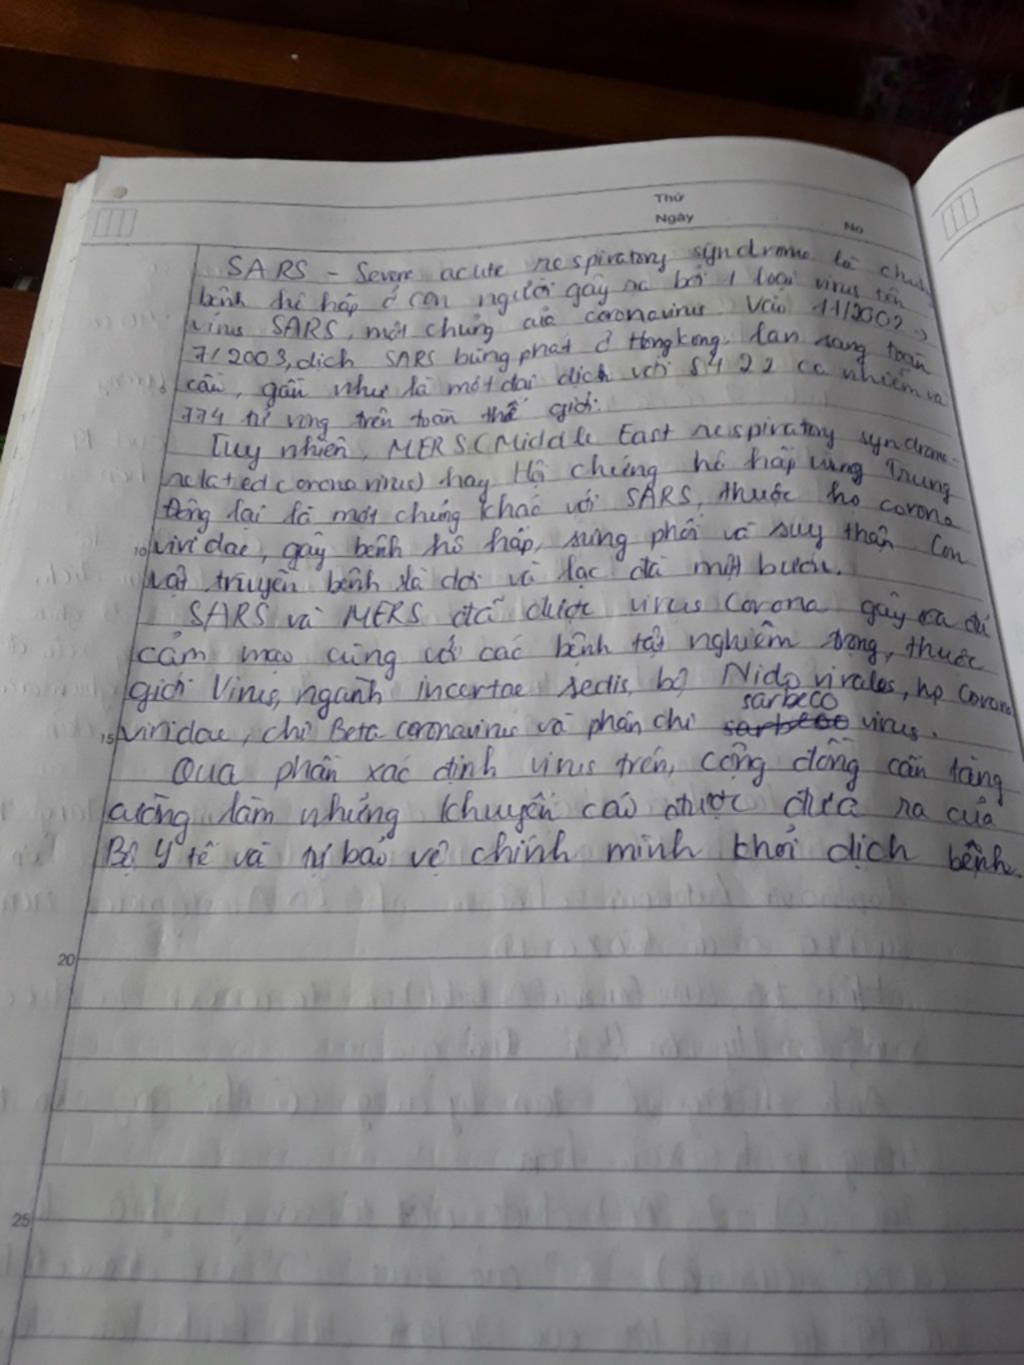 Thứ
Ngày
No
SARS - Severe acute respiratory syndrome là chứng
bệnh hô hấp ở con người gây ra bởi 1 loại virus tên
virus SARS, một chủng của coronavirus. Vào 11/2002 →
7/2003, dịch SARS bùng phát ở Hongkong, lan sang toàn
cầu, gần như là một đại dịch với 8422 ca nhiễm và
774 tử vong trên toàn thế giới.
Tuy nhiên, MERS (Middle East respiratory syndrome-
related coronavirus) hay Hội chứng hô hấp vùng Trung
Đông lại là một chủng khác với SARS, thuộc họ corona
10 viridae, gây bệnh hô hấp, sưng phổi và suy thận. Con
vật truyền bệnh là dơi và lạc đà một bướu.
SARS và MERS đã được virus Corona gây ra từ
cảm mạo cùng với các bệnh tật nghiêm trọng, thuộc
giới Virus, ngành incertae sedis, bộ Nidovirales, họ Corona
sarbeco
15 viridae, chi Beta coronavirus và phân chi sarbeco virus.
Qua phần xác định virus trên, cộng đồng cần tăng
cường làm những khuyến cáo được đưa ra của
Bộ Y tế và tự bảo vệ chính mình khỏi dịch bệnh.
20
25